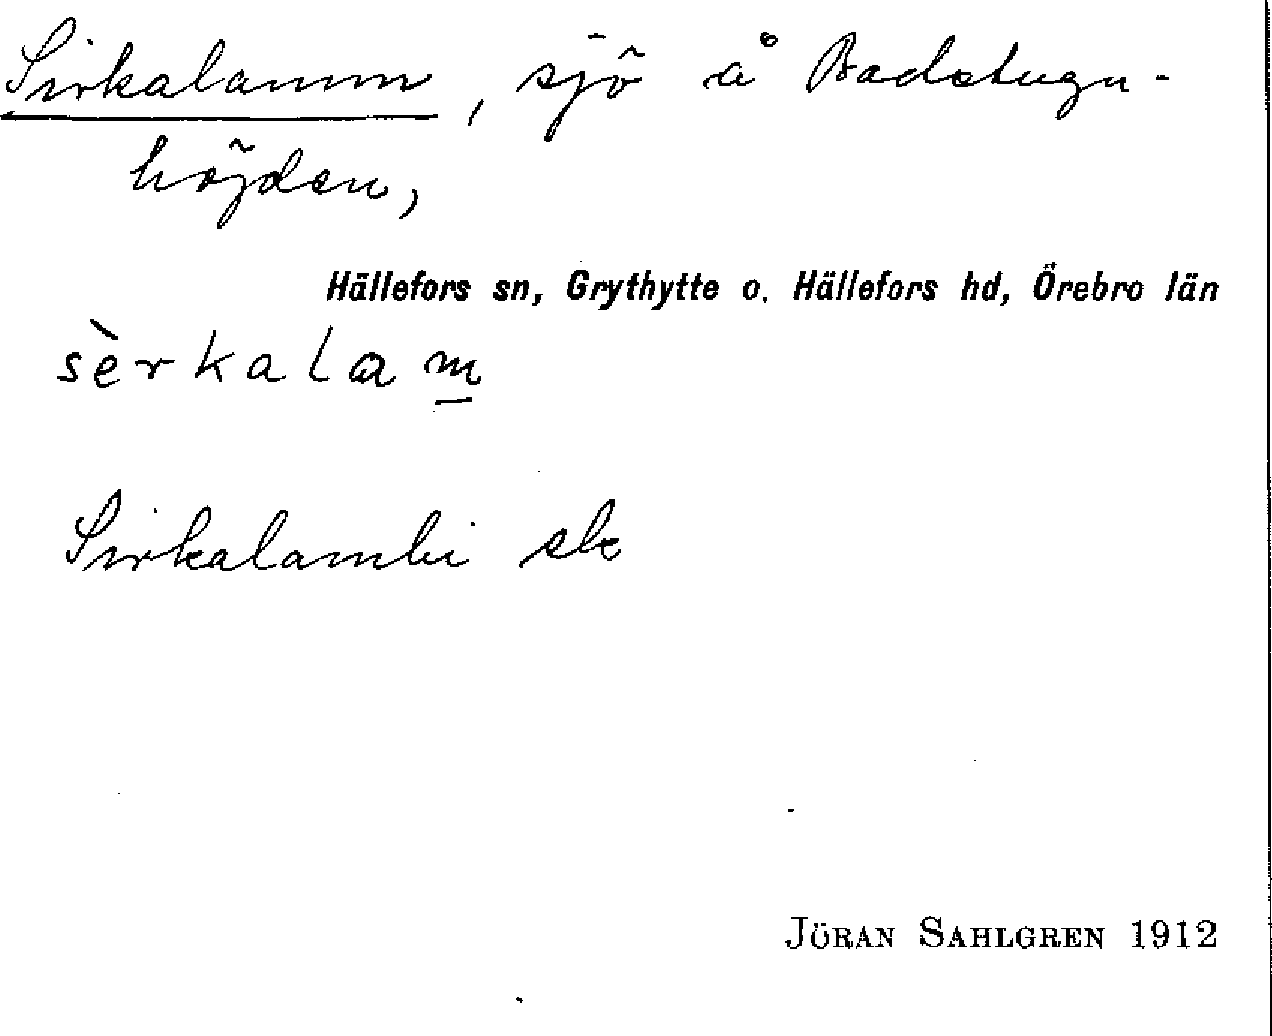 Sirkalamm, sjö å Badstugu-
höjden,
Hällefors sn, Grythytte o. Hällefors hd, Örebro län
sèrkalam
Sirkalambi sk
JÖRAN SAHLGREN 1912